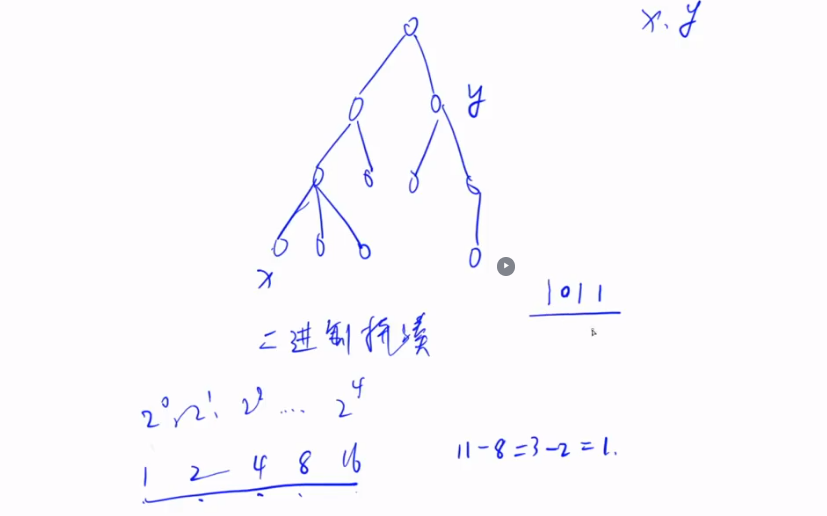 x、y
y
x
1011
二进制拼凑
2^0、2^1、2^2 .... 2^4
1 2 4 8 16
11-8=3-2=1.